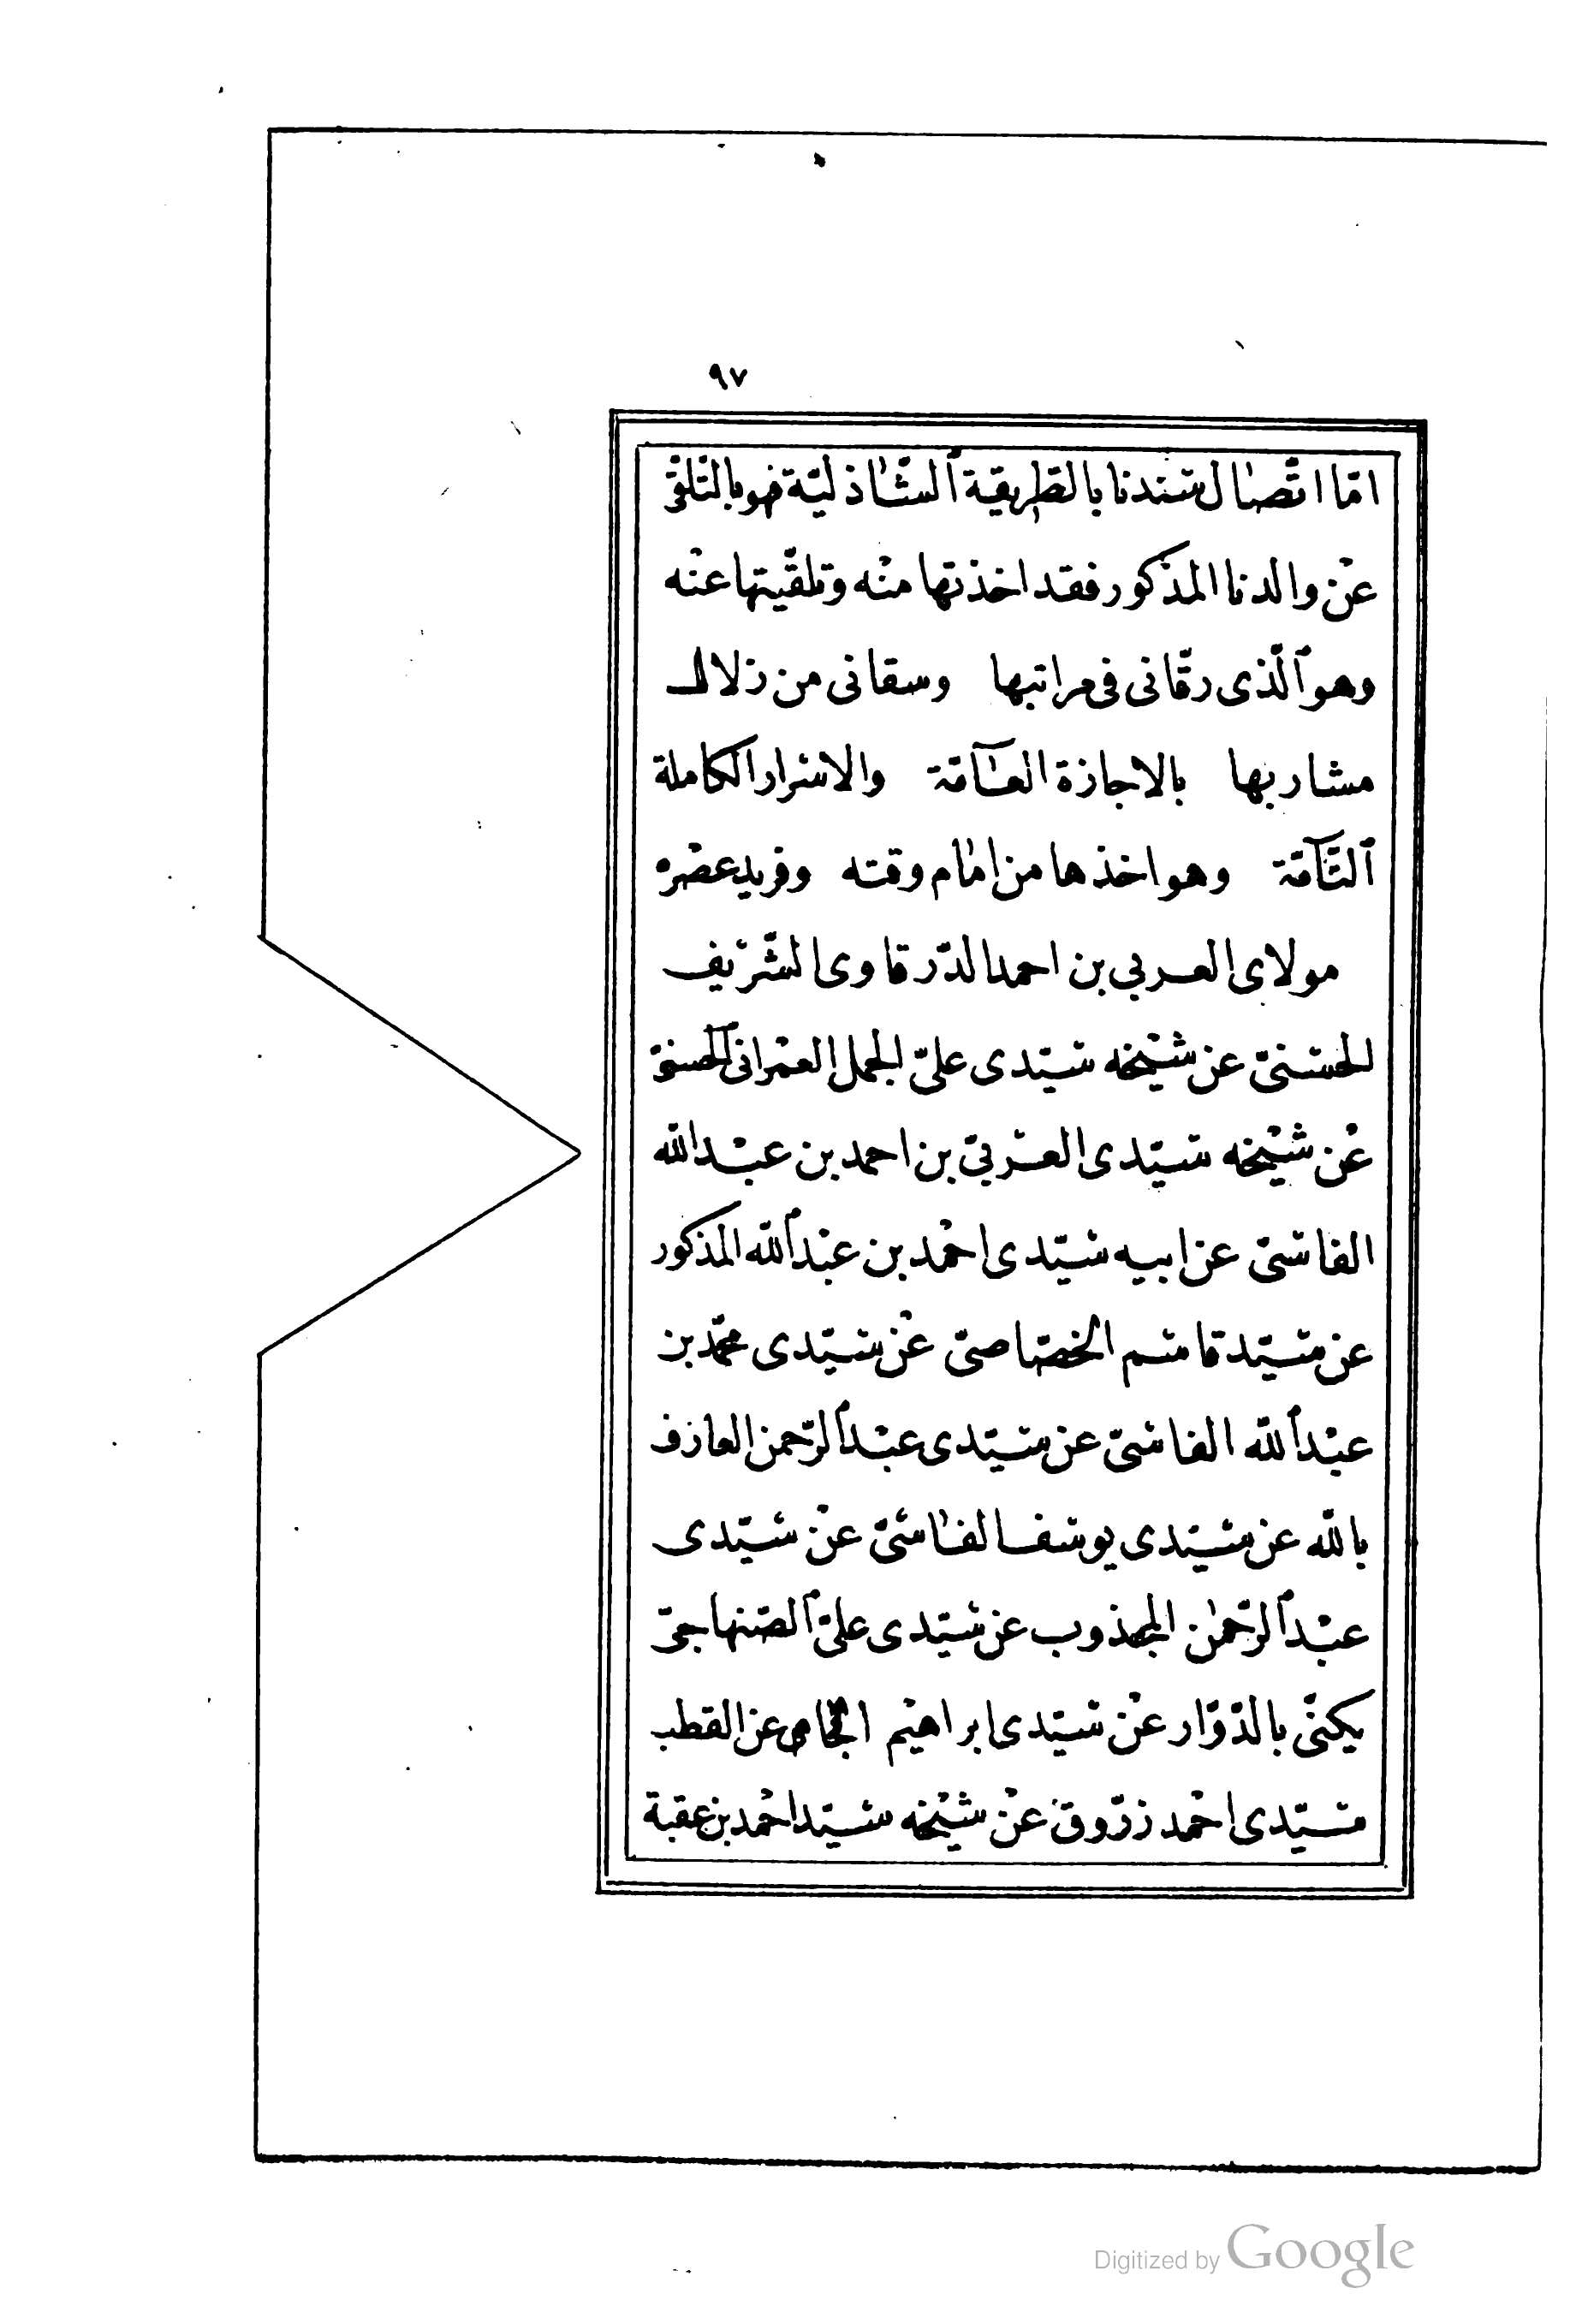 ٩٧
امّا اتّصال سندنا بالطّريقة ٱلشّاذليّة فهو بالتّلقّى
عنْ والدنا المذكور فقد اخذتها منْه وتلقّيتها عنْه
وهو ٱلّذى رقّانى فى مراتبها وسقانى من زلال
مشاربها بالاجازة العآمّة والاسْرار الكاملة
ٱلتّآمّة وهو اخذها من امام وقته وفريد عصْره
مولاى العربي بن احمد الدّرقاوى الشّرْيف
الحسنىّ عن شيْخه سيّدى علىّ الجمل العمْرانى ٱلحسنىّ
عنْ شيْخه سيّدى العرْبىّ بن احمد بن عبْد الله
الفاسىّ عن ابيه سيّدى احْمد بن عبْد ٱللّه المذكور
عن سيّد قاسم الخصّاصىّ عنْ سيّدى محمّد بن
عبْد ٱللّه الفاسىّ عن سيّدى عبْد ٱلرّحمن العارف
باللّه عن سيّدى يوسف الفاسىّ عنْ سيّدى
عبْد ٱلرّحمٰن المجذوب عن سيّدى علىّ ٱلصّنهاجىّ
يكنّى بالدّوّار عنْ سيّدى ابراهيْم الحجّام عن القطب
سيّدى احْمد زرّوق عنْ شيْخه سيّد احْمد بن عقبة
Digitized by Google